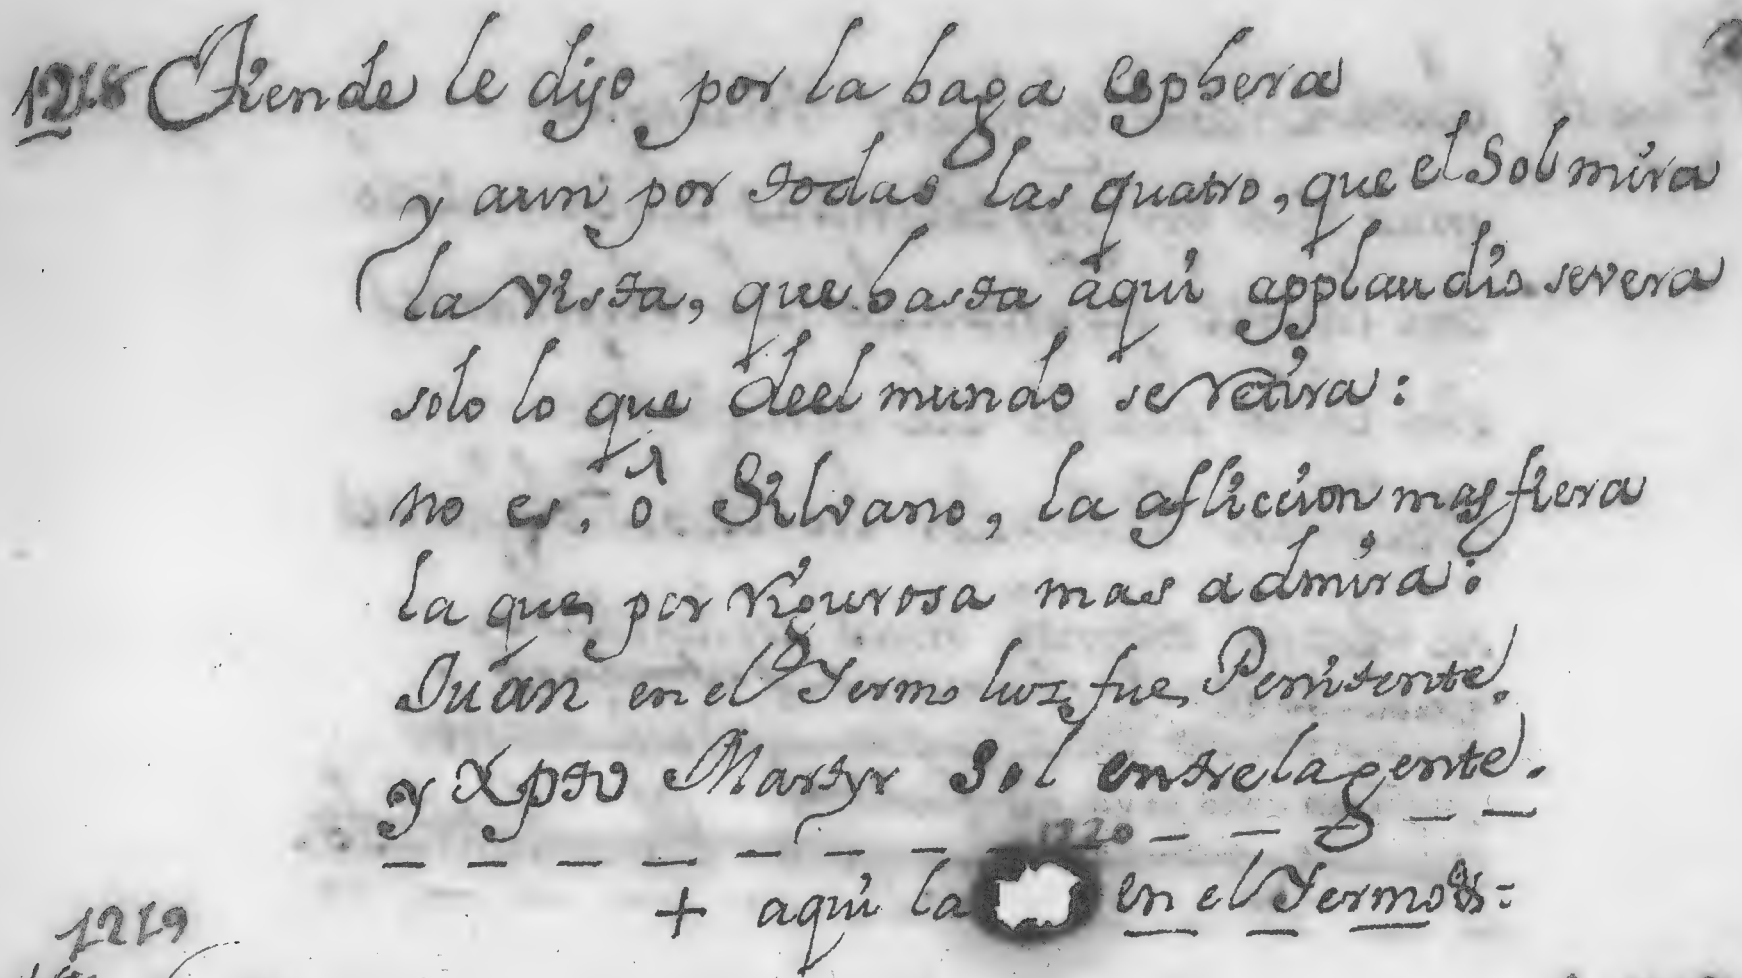 1218 Tiende le dijo por la baga esphera
y aun por todas las quatro, que el Sol mira
la vista, que hasta aqui applaudio severa
solo lo que deel mundo se retira:
no es, ô Silvano, la afliccion mas fiera
la que, por rigurosa mas admira:
Juan en el Yermo luz fue, Penitente,
y Xpto Martyr Sol entre la gente.
1220
+ aqui la en el Yermo
1219